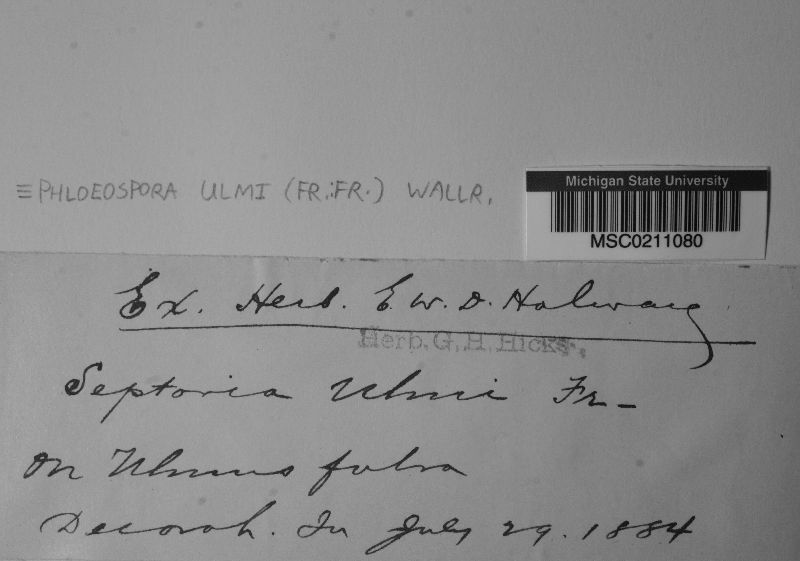 ≡ PHLOEOSPORA ULMI (FR.:FR.) WALLR.
Michigan State University
MSC0211080
Ex. Herb. E. W. D. Holway
Herb. G. H. Hicks.
Septoria Ulmi Fr-
on Ulmus fulva
Decorah. Ia July 29. 1884